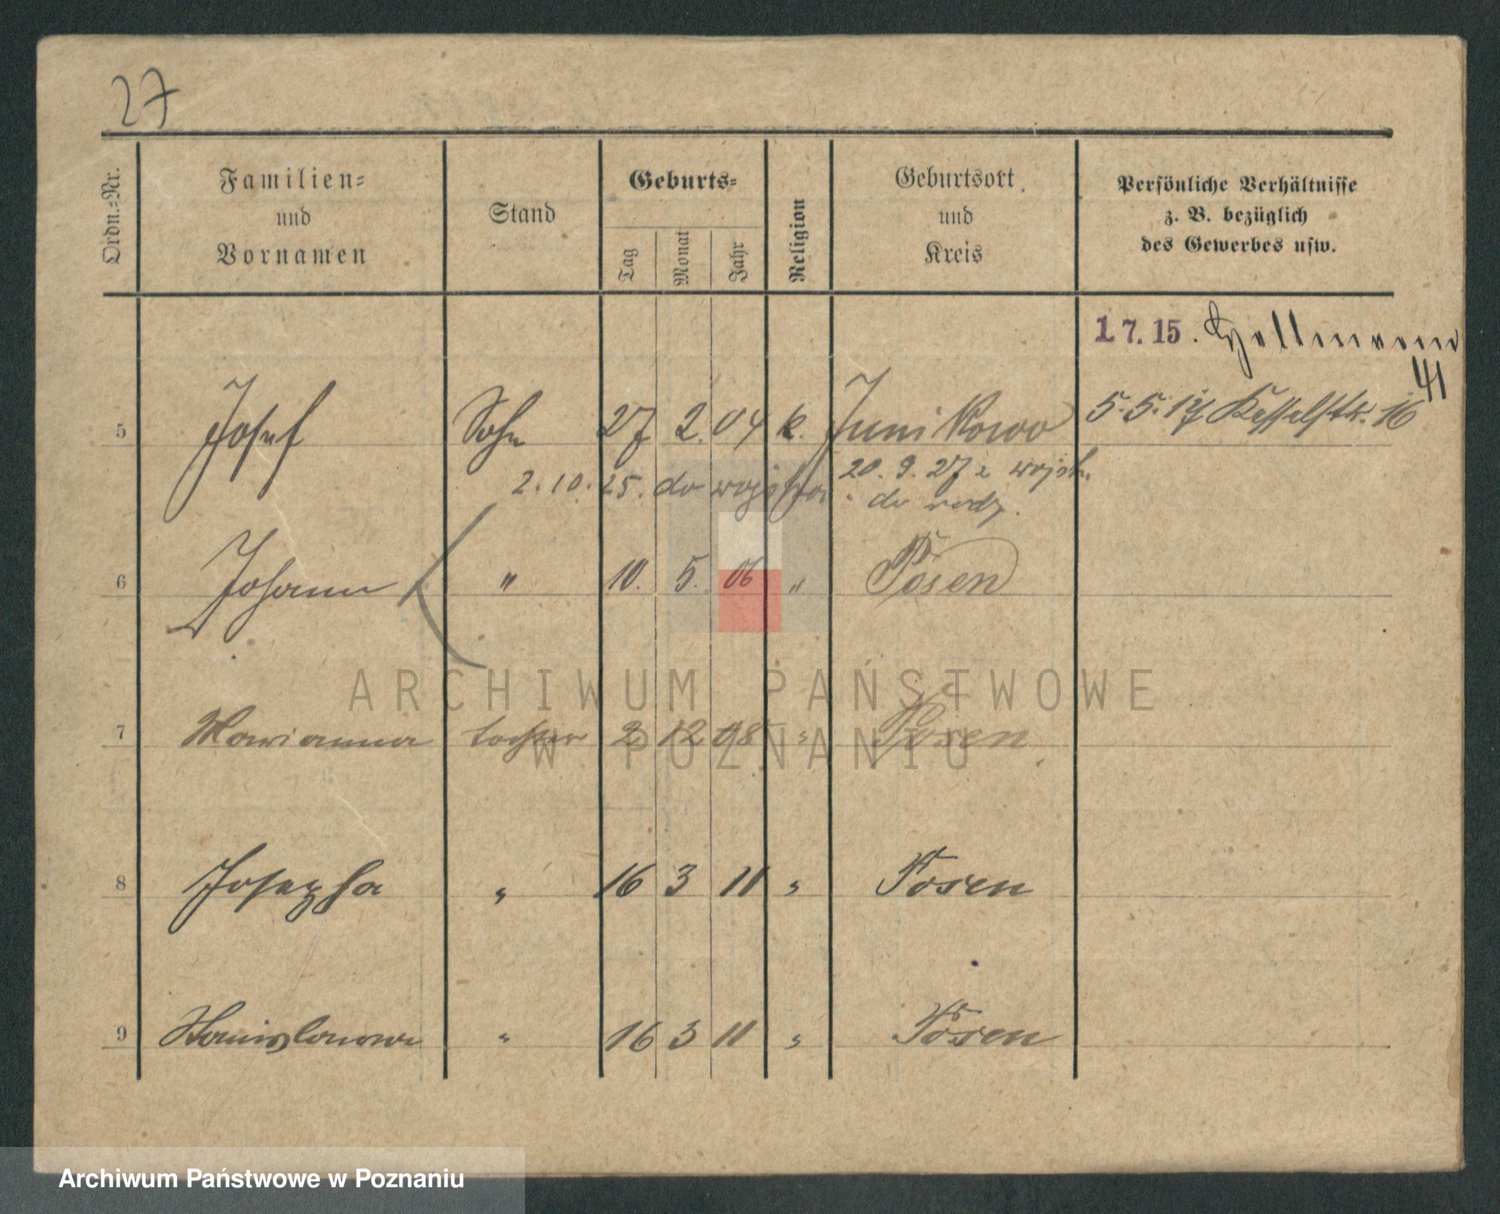 27
Ordn.-Nr.
Familien-
und
Vornamen
Stand
Geburts-
Tag
Monat
Jahr
Religion
Geburtsort
und
Kreis
Persönliche Verhältnisse
z. B. bezüglich
des Gewerbes usw.
1 7. 15.
41
5 Josef Sohn 27 2. 04 k. Junikowo 5. 5. 17 Kesselstr. 16
2. 10. 25. do wojska 20. 9. 27 z wojsk.
do rodz.
6 Johann " 10. 5. 06 " Posen
7 Marianna Tochter 2 12 08 " Posen
8 Josepha " 16 3 11 " Posen
9 Stanislawa " 16 3 11 " Posen
ARCHIWUM PAŃSTWOWE
W POZNANIU
Archiwum Państwowe w Poznaniu